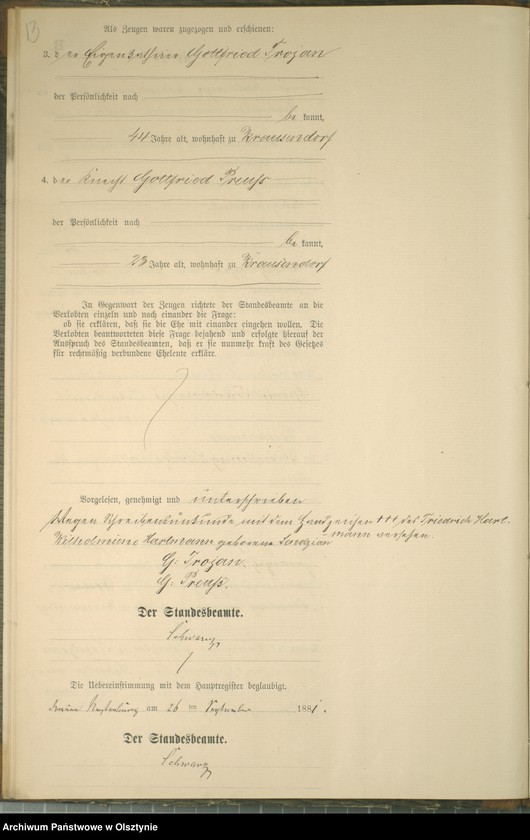 13
Als Zeugen waren zugezogen und erschienen:
3. der Eigenkäthner Gottfried Trojan
der Persönlichkeit nach
be kannt,
44 Jahre alt, wohnhaft zu Krausendorf
4. der Knecht Gottfried Preuß
der Persönlichkeit nach
be kannt,
23 Jahre alt, wohnhaft zu Krausendorf
In Gegenwart der Zeugen richtete der Standesbeamte an die
Verlobten einzeln und nach einander die Frage:
ob sie erklären, daß sie die Ehe mit einander eingehen wollen. Die
Verlobten beantworteten diese Frage bejahend und erfolgte hierauf der
Ausspruch des Standesbeamten, daß er sie nunmehr kraft des Gesetzes
für rechtmäßig verbundene Eheleute erkläre.
Vorgelesen, genehmigt und unterschrieben
Wegen Schreibensunkunde mit dem Handzeichen +++ des Friedrich Hart-
mann versehen.
Wilhelmine Hartmann geborene
G. Trojan.
G. Preuß.
Der Standesbeamte.
Schwarz
Die Uebereinstimmung mit dem Hauptregister beglaubigt.
am 26 ten September 1881.
Der Standesbeamte.
Schwarz
Archiwum Państwowe w Olsztynie